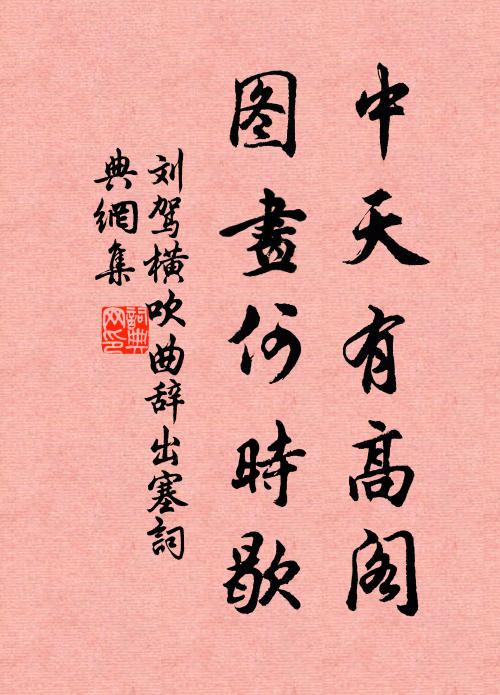 中天有高阁
图畫何時歇
刘驾横吹曲辞出塞詞
典網集
詞典网印